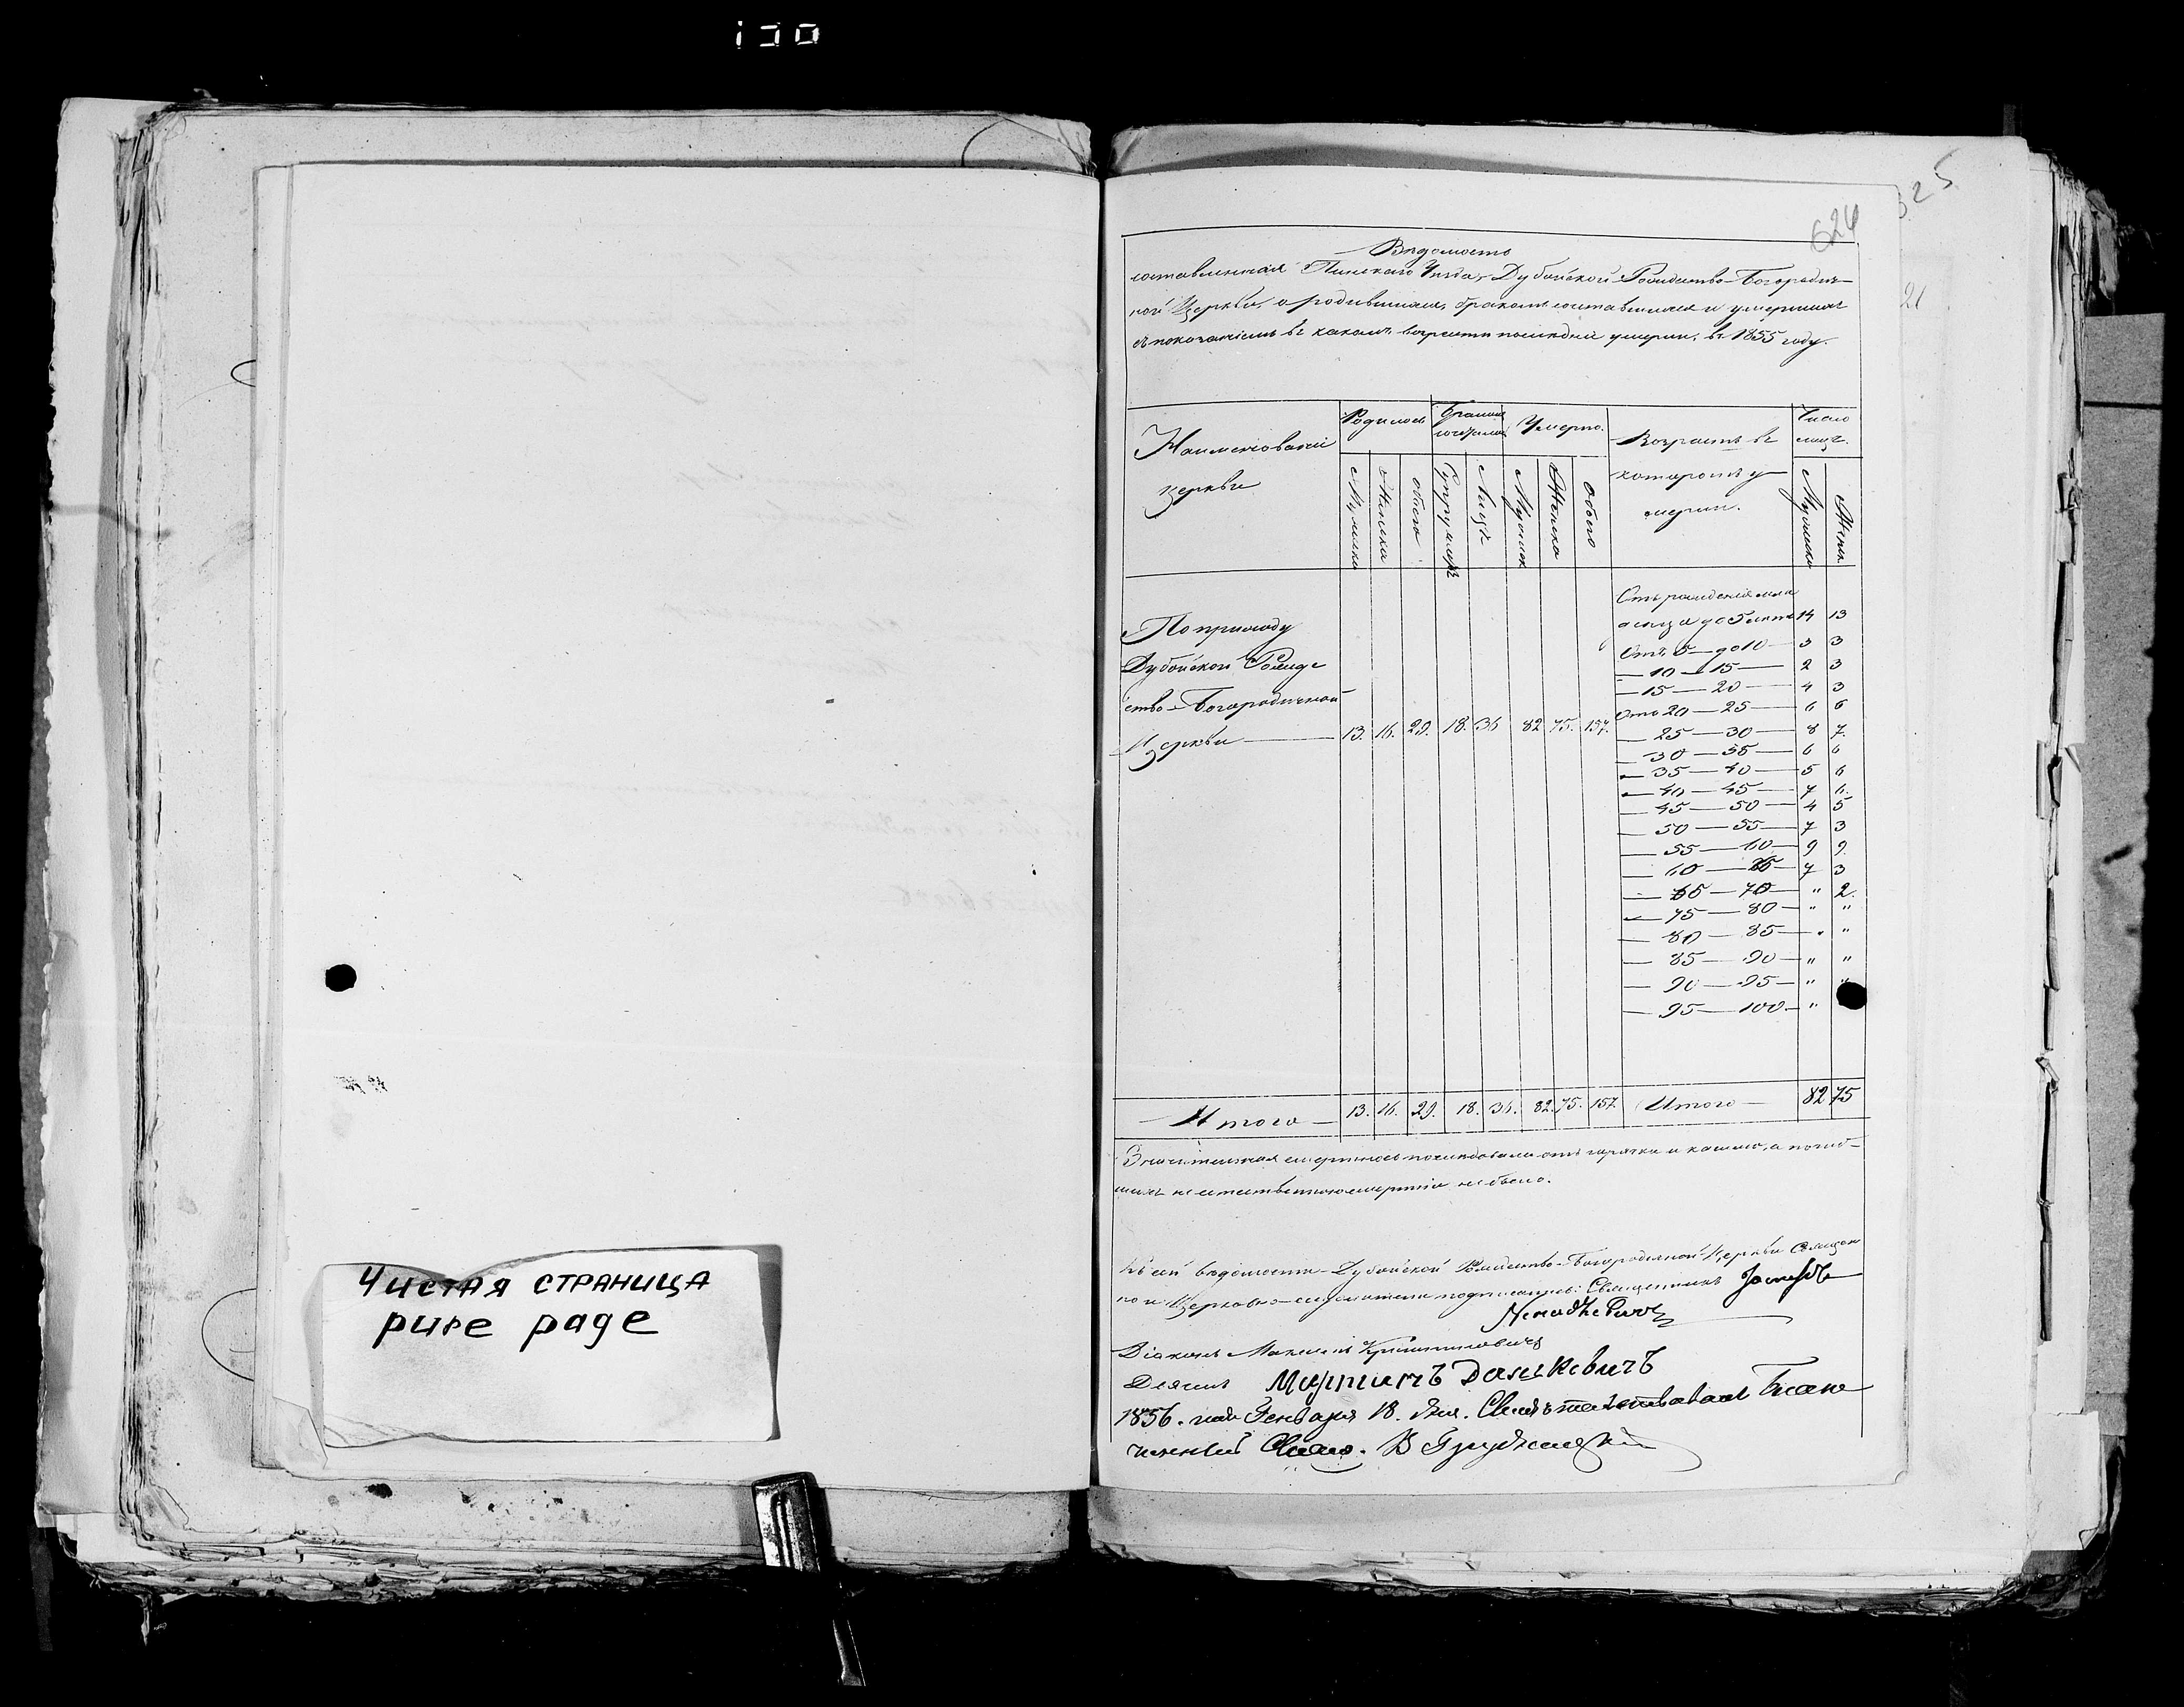 624
325
21
Вѣдомость
составленная Пинскаго Уѣзда, Дубойской Рождество-Богородич-
ной Церкви, о родившихся, бракомъ сочетавшихся и умершихъ
съ показаніемъ въ какомъ возрасти послѣдніи умерли, въ 1855 году.
Наименованіе церкви
Родилось
Бракомъ сочеталось
Умерло.
Возрастъ въ которомъ умерли.
Число лицъ.
Мужеска Женска обоего Супружествъ Лицъ Мужеск Женска Обоего Мужеска Женск.
Отъ рожденія мла
денца до 5 лѣтъ 14 13
Отъ 5 — до 10 — 3 3
— 10 — 15 — 2 3
— 15 — 20 — 4 3
Отъ 20 — 25 — 6 6
— 25 — 30 — 8 7.
— 30 — 35 — 6 6
— 35 — 40 — 5 6
— 40 — 45 — 7 6.
— 45 — 50 — 4 5
— 50 — 55 — 7 3
— 55 — 60 — 9 9.
— 60 — 65 — 7 3
— 65 — 70 — " 2.
— 75 — 80 — " "
— 80 — 85 — " "
— 85 — 90 — " "
— 90 — 95 — " "
— 95 — 100 — "
По приходу
Дубойской Рожде
ство-Богородичной
Церкви — 13. 16. 29. 18. 36 82 75. 157.
Итого — 13. 16. 29. 18. 36. 82. 75. 157. Итого — 82 75
Значительная смертность послѣдовала отъ горячки и кашлю, а погиб-
шихъ неестественною смертію не было.
Къ сей вѣдомости Дубойской Рождество-Богородичной Церкви Священ
но и Церковно-служители подписались: Священникъ Іосифъ
Діаконъ Максимъ
Дьячекъ Мартинъ Данькевичъ
1856. года Генваря 18. дня. Свидѣтельствовалъ Благо
чинный Свящ. В
Чистая страница
pure page